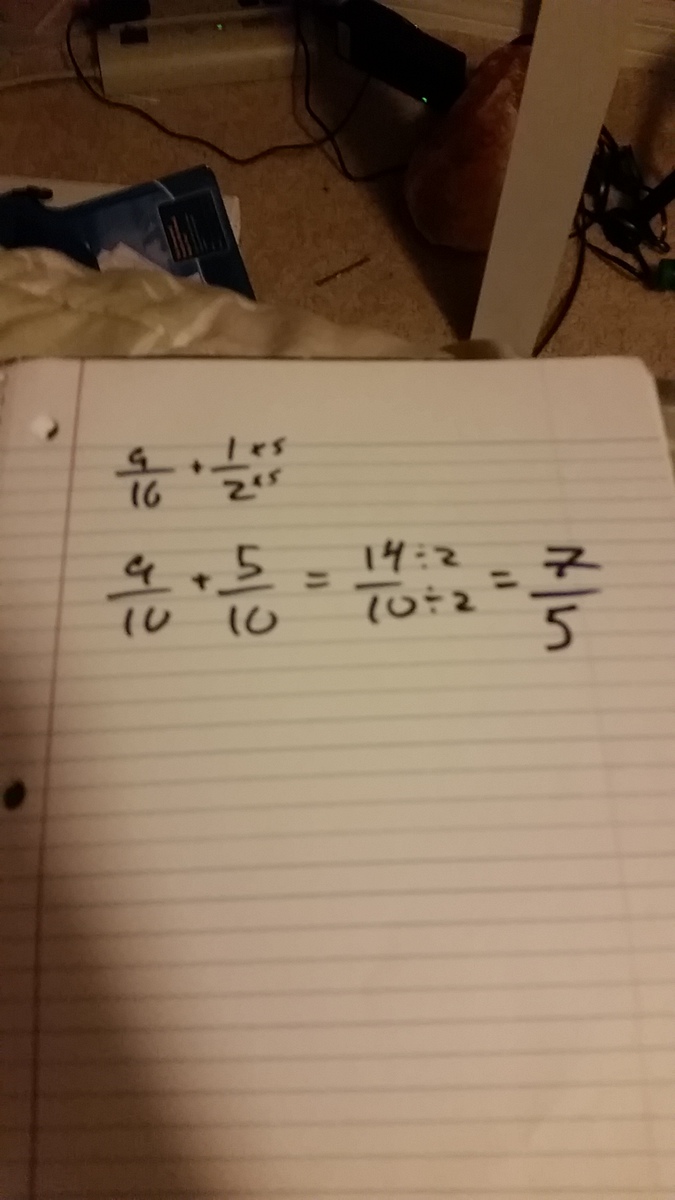 9/10 + 1×5/2×5
9/10 + 5/10 = 14÷2/10÷2 = 7/5